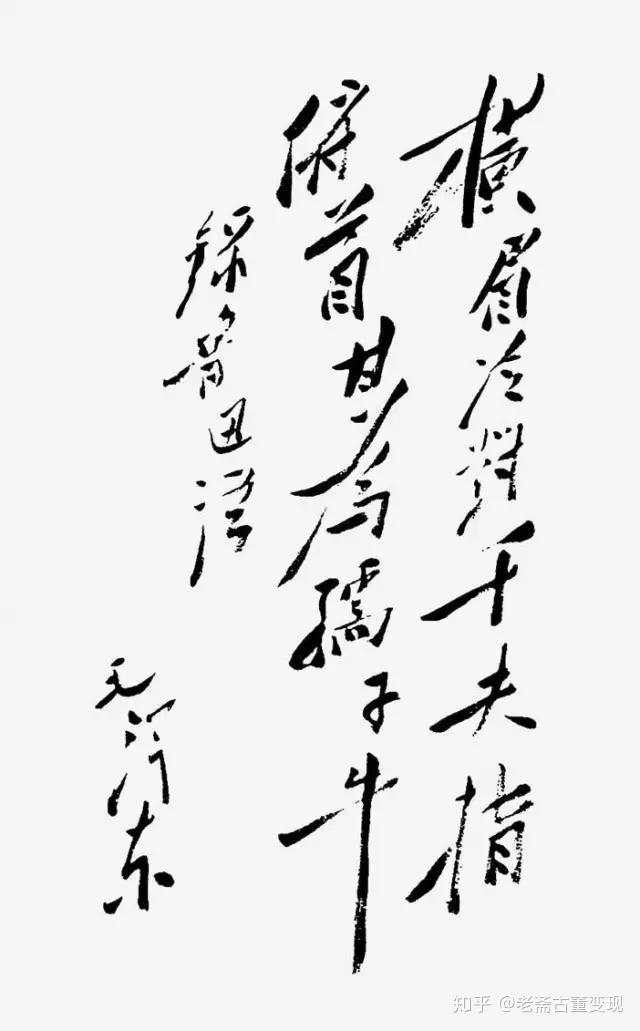 橫眉冷對千夫指
俯首甘為孺子牛
錄魯迅語
毛澤东
知乎 @老斋古董变现